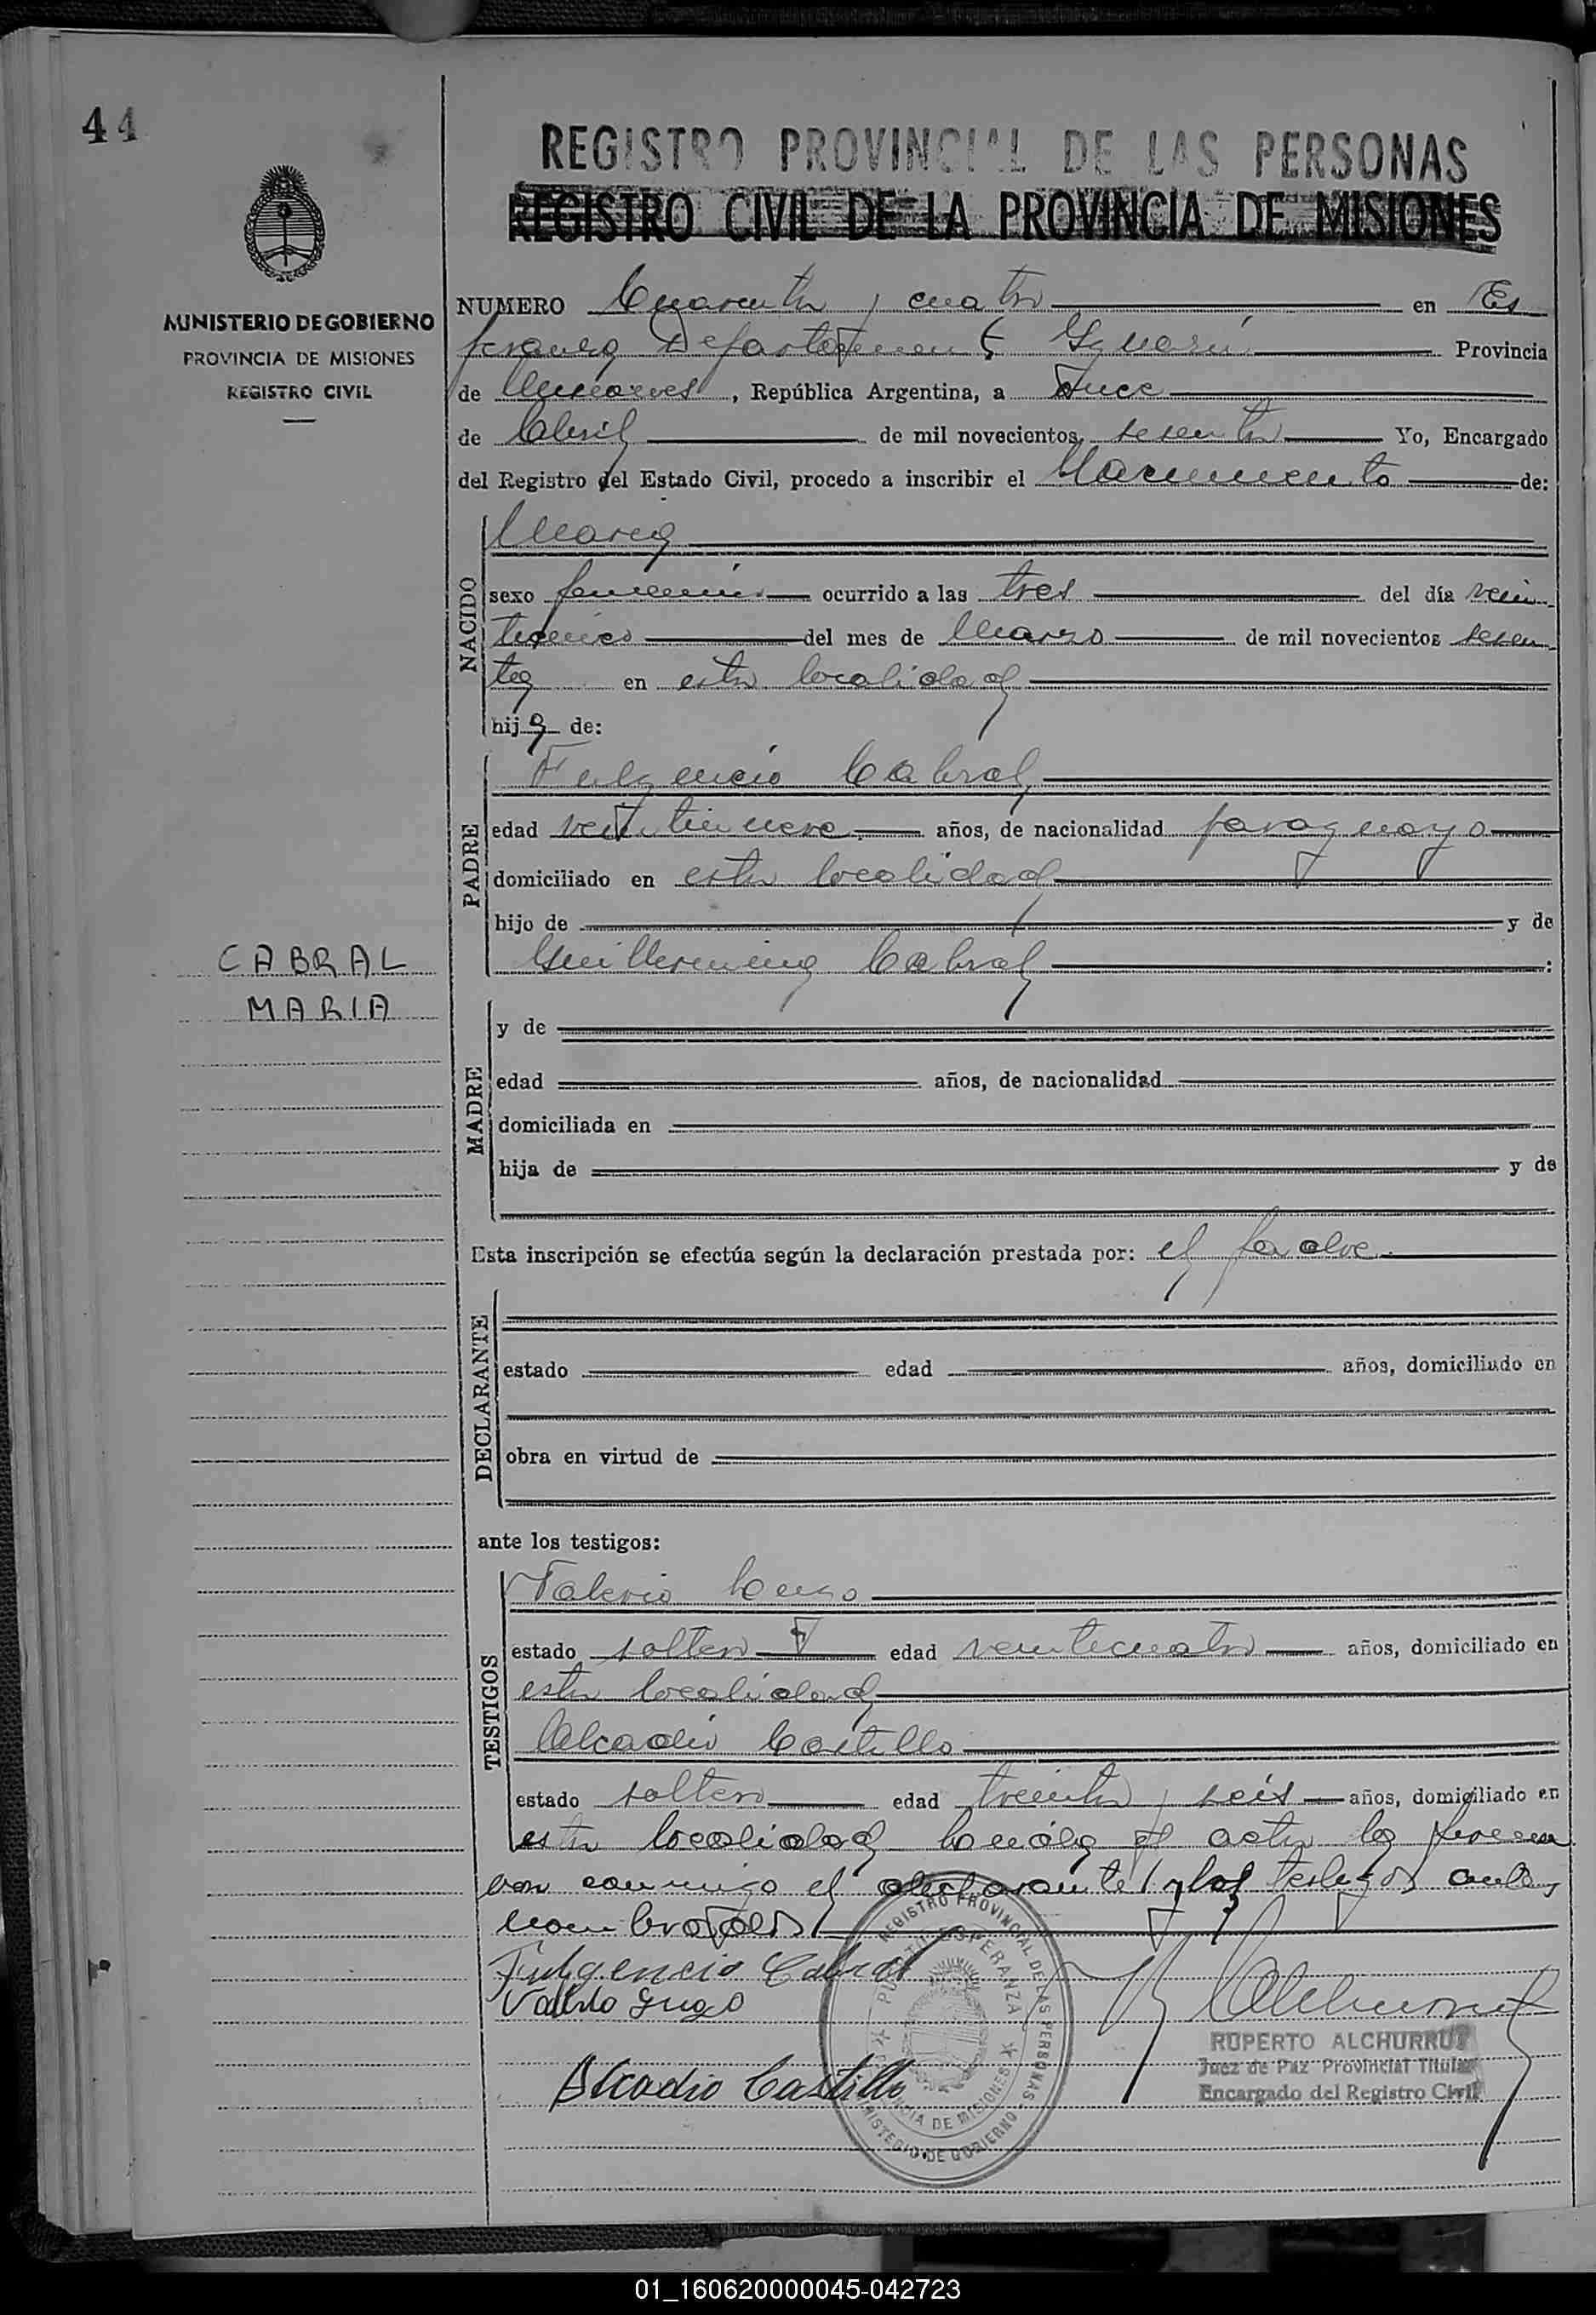 44
REGISTRO PROVINCIAL DE LAS PERSONAS
REGISTRO CIVIL DE LA PROVINCIA DE MISIONES
MINISTERIO DE GOBIERNO
PROVINCIA DE MISIONES
REGISTRO CIVIL
NUMERO Cuarenta y cuatro en Es
peranza Departamento Guaraní Provincia
de Misiones, República Argentina, a once
de Abril de mil novecientos sesenta Yo, Encargado
del Registro del Estado Civil, procedo a inscribir el Nacimiento de:
NACIDO
Maria
sexo femenino ocurrido a las tres del día vein
ticinco del mes de Marzo de mil novecientos sesen
ta en esta localidad
hija de:
PADRE
Fulgencio Cabral
edad veintinueve años, de nacionalidad paraguayo
domiciliado en esta localidad
hijo de y de
Guillermina Cabral :
CABRAL
MARIA
MADRE
y de
edad años, de nacionalidad
domiciliada en
hija de y de
Esta inscripción se efectúa según la declaración prestada por: el padre
DECLARANTE
estado edad años, domiciliado en
obra en virtud de
ante los testigos:
TESTIGOS
estado soltero edad veinticuatro años, domiciliado en
esta localidad
Alcadio Castillo
estado soltero edad treinta y seis años, domiciliado en
esta localidad Leída el acta la firman
con conmigo el declarante y los testigos ante
nombrados
Fulgencio Cabral
Alcadio Castillo
REGISTRO PROVINCIAL DE LAS PERSONAS
PUERTO ESPERANZA
PROVINCIA DE MISIONES
MINISTERIO DE GOBIERNO
RUPERTO ALCHURRUT
Juez de Paz Provincial Titular
Encargado del Registro Civil
01_160620000045-042723